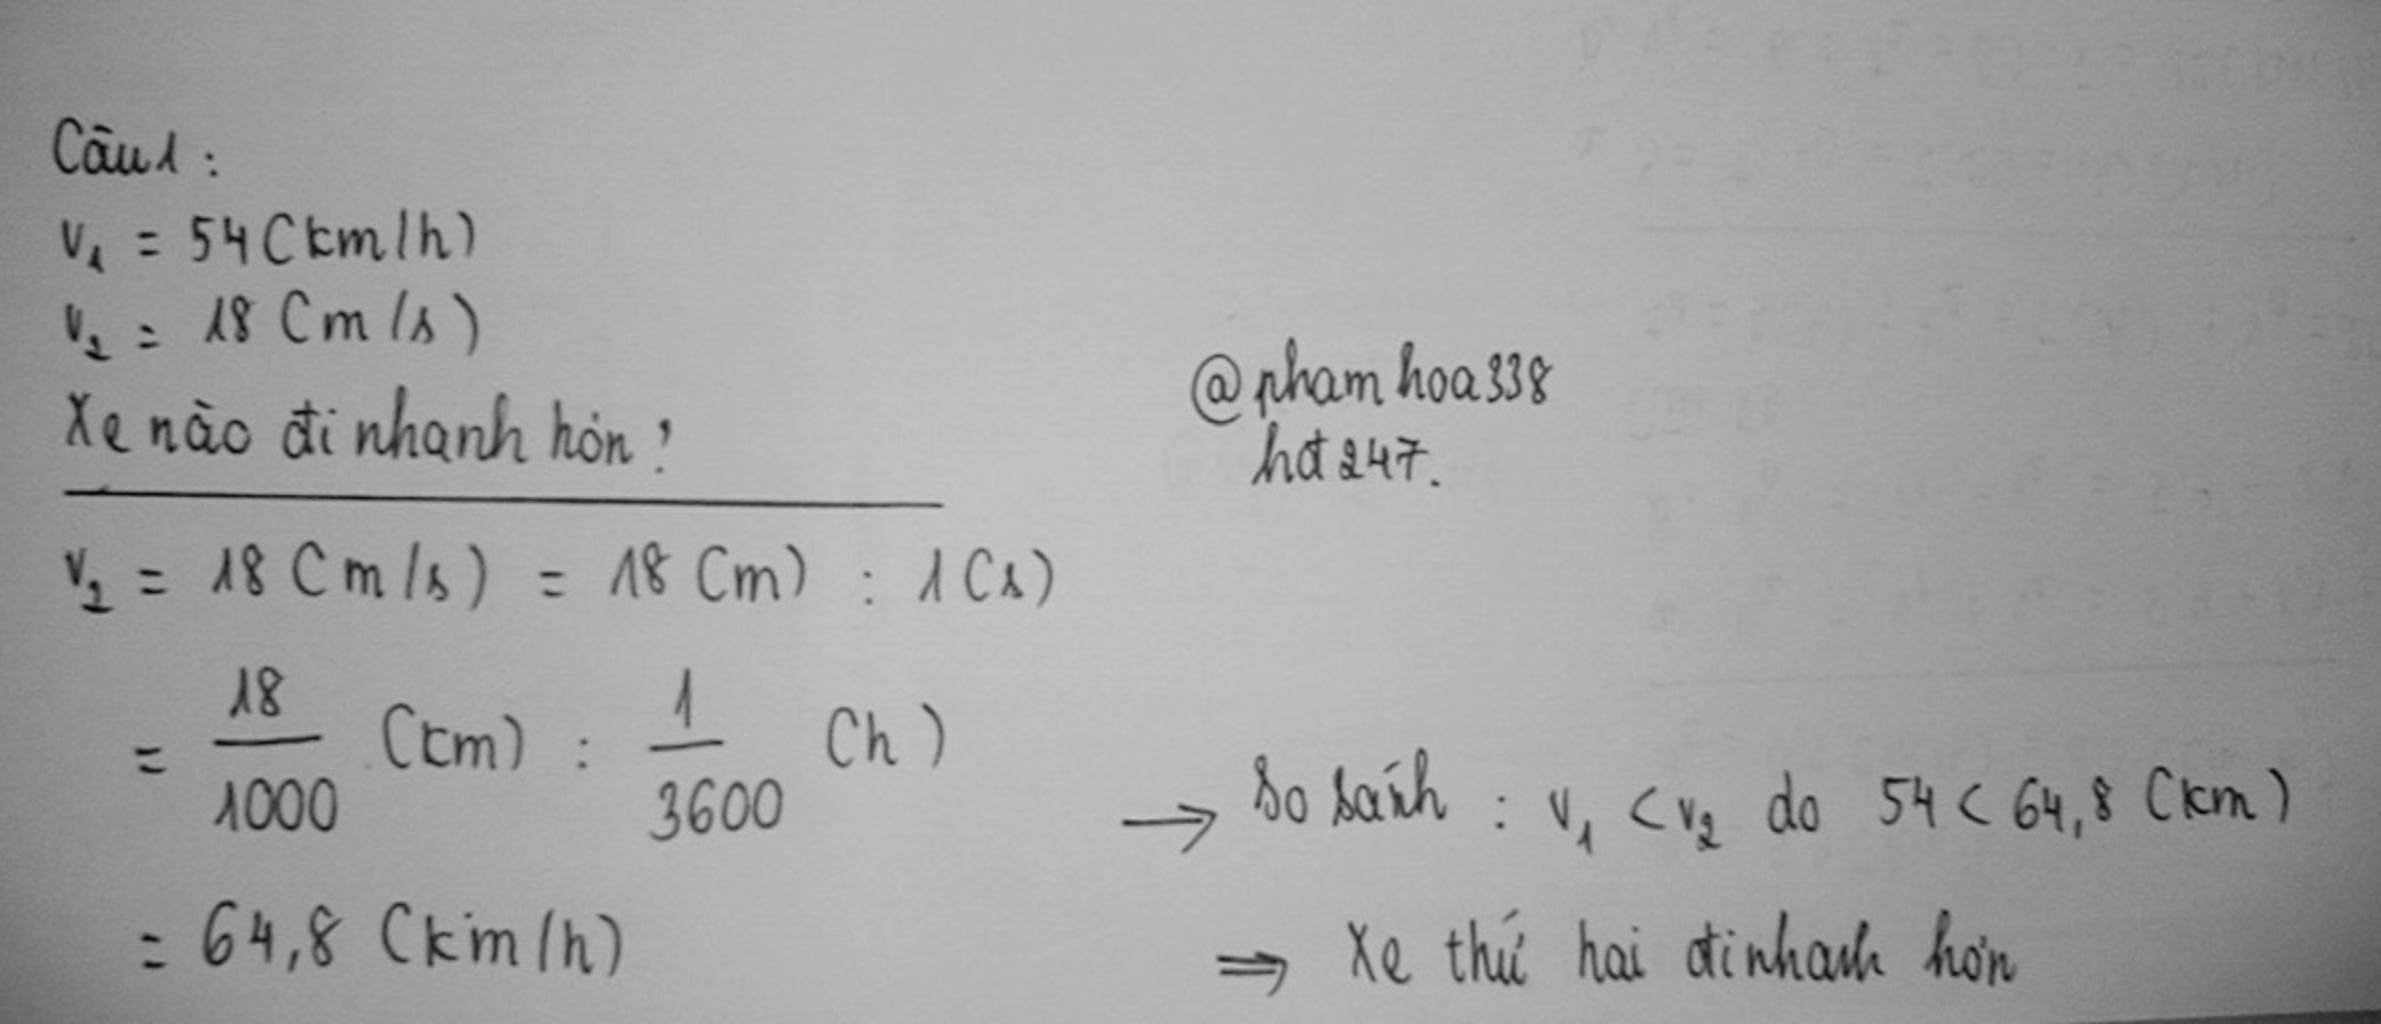 Câu 1:
v₁ = 54 (km/h)
v₂ = 18 (m/s)
Xe nào đi nhanh hơn?
@phamhoa338
hđ247.
v₂ = 18 (m/s) = 18 (m) : 1 (s)
= 18/1000 (km) : 1/3600 (h)
= 64,8 (km/h)
→ So sánh : v₁ < v₂ do 54 < 64,8 (km)
⇒ Xe thứ hai đi nhanh hơn